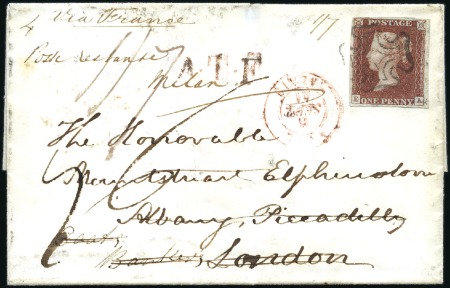 Via France
Poste restante
Milan
A.T.F
POSTAGE
ONE PENNY
The Honorable
Mountstuart Elphinstone
Albany, Piccadilly
London